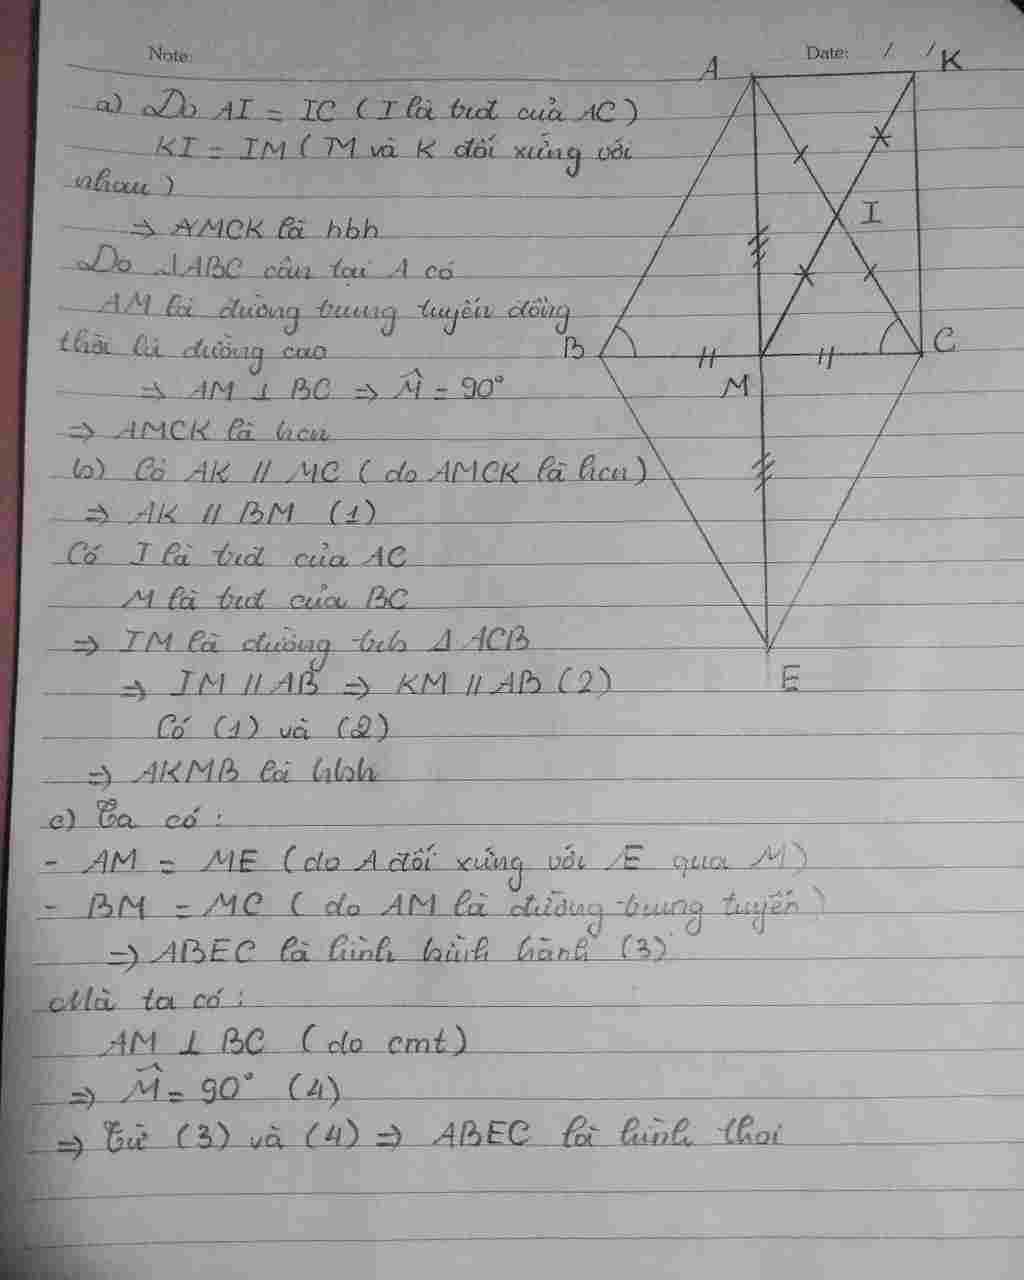 Note:
Date: / /
a) Do AI = IC ( I là trđ của AC )
KI = IM ( M và K đối xứng với
nhau )
⇒ AMCK là hbh
Do ΔABC cân tại A có
AM là đường trung tuyến đồng
thời là đường cao
⇒ AM ⊥ BC ⇒ M̂ = 90°
⇒ AMCK là hcn
b) Có AK // MC ( do AMCK là hcn )
⇒ AK // BM (1)
Có I là trđ của AC
M là trđ của BC
⇒ IM là đường trb Δ ACB
⇒ IM // AB ⇒ KM // AB (2)
Có (1) và (2)
⇒ AKMB là hbh
c) Ta có :
- AM = ME ( do A đối xứng với E qua M )
- BM = MC ( do AM là đường trung tuyến )
⇒ ABEC là hình bình hành (3)
Mà ta có :
AM ⊥ BC ( do cmt )
⇒ M̂ = 90° (4)
⇒ Từ (3) và (4) ⇒ ABEC là hình thoi
A
K
I
B
C
M
E